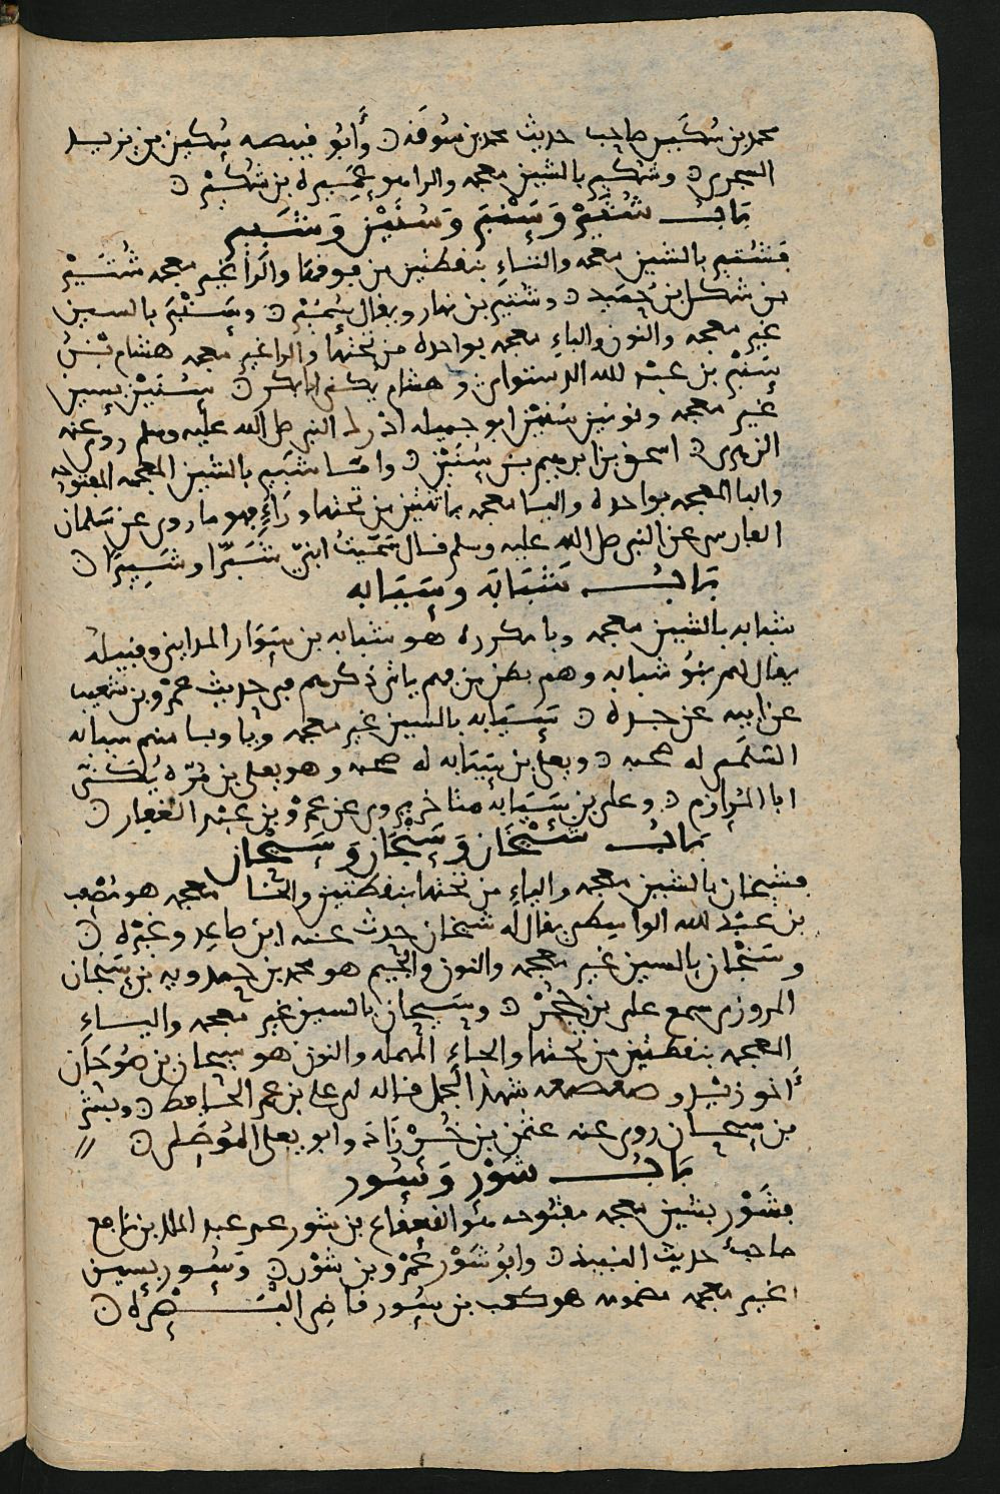 محمد بن سكين صاحب حديث محمد بن سوقة ۞ وأبو قبيصه سكين بن يزيد
السحري ۞ وشكيم بالشين معجمه والرا هو عميره بن شكيم ۞
باب شُتَيْر وسَنْبَر وسُنَيْن وشبير
فشُتير بالشين معجمه والتاء بنقطتين من فوقها والرا غير معجمه شُتَيْر
بن شكل بن حميد ۞ وشتير بن نهار ويقال سُمَيْر ۞ وسَنْبَر بالسين
غير معجمه والنون والباء معجمه بواحده من تحتها والرا غير معجمه هشام بن
سَنْبَر بن عبد الله الدستوائي وهشام يكنى ابا بكر ۞ سُنَيْن بسين
غير معجمه ونونين سُنَيْن ابو جميله ادرك النبي صلى الله عليه وسلم روى عنه
الزهري ۞ اسحق بن ابرهيم بن سُنَيْن ۞ وامّا شبّير بالشين المعجمه المفتوحه
والبا المعجمه بواحده واليا معجمه باثنتين من تحتها وراءٍ فهو ما روى عن سلمان
الفارسي عن النبي صلى الله عليه وسلم قال سمّيتُ ابنيّ شَبَّرا وشَبِيرًا ۞
باب شَبَابَه وسَيَابه
شبابه بالشين معجمه وبا مكرره هو شبابه بن سَوّار المدايني وقبيله
يقال لهم بنو شبابه وهم بطن من فهم ياتي ذكرهم في حديث عمرو بن شعيب
عن ابيه عن جده ۞ سَيَابه بالسين غير معجمه ويا وبا منهم سيابه
السُّلَمي له صحبه ۞ ويعلى بن سَيَابه له صحبه وهو يعلى بن مُرّه يُكَنّى
ابا المُرازم ۞ وعلى بن سَيَابه متاخر يروى عن عمرو بن عبد الغفار ۞
باب شَيْخَان وسَنْجَان وسَيْحان
فشيخان بالشين معجمه والياء من تحتها بنقطتين والخا معجمه هو مُصْعب
بن عبد الله الواسطي يقال له شيخان حدث عنه ابن صاعد وغيره ۞
وسَنْجان بالسين غير معجمه والنون والجيم هو محمد بن حمدويه بن سَنْجان
المروزي سمع علي بن حُجْرْ ۞ وسَيحان بالسين غير معجمه والياء
المعجمه بنقطتين من تحتها والحاء المهمله والنون هو سيحان بن صُوحَان
أخو زيْد وصعصعه شهد الجمل قاله لي علي بن عمر الحافظ ۞ وبشر
بن سيحان روى عنه عثمن بن خُرّزاذ وابو يعلى المَوْصِلي ۞ //
باب شَوْر وسُور
فشَوْر بشين معجمه مفتوحه هو القعقاع بن شور عم عبد الملك بن نافع
صاحبُ حديث النبيذ ۞ وابو شَوْر عَمْرو بن شَوْر ۞ وسُور بسين
غير معجمه مضمومه هو كعب بن سُور قاضي البَصْره ۞